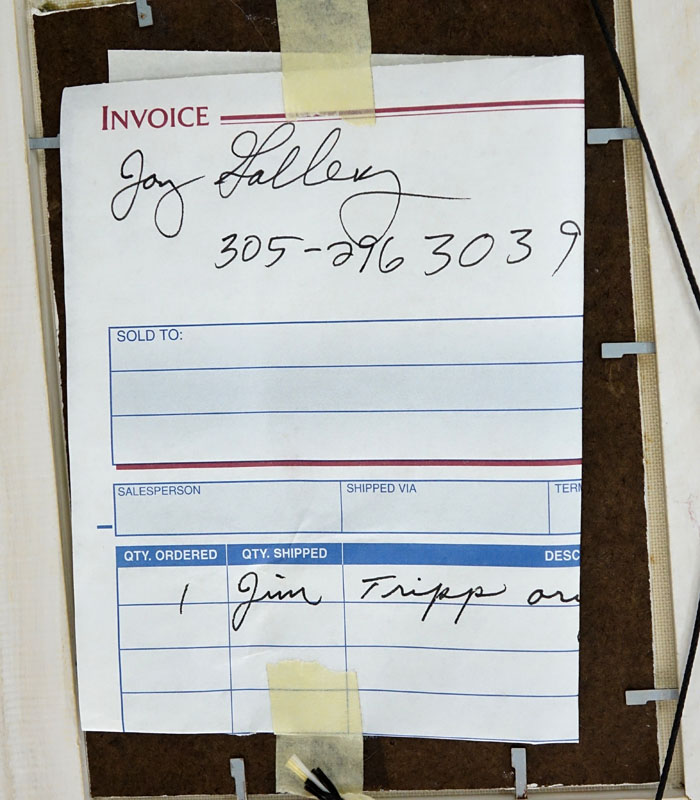 INVOICE
Joy Gallery
305-296 3039
SOLD TO:
SALESPERSON SHIPPED VIA TERM
QTY. ORDERED QTY. SHIPPED DESC
1 Jim Tripp ori